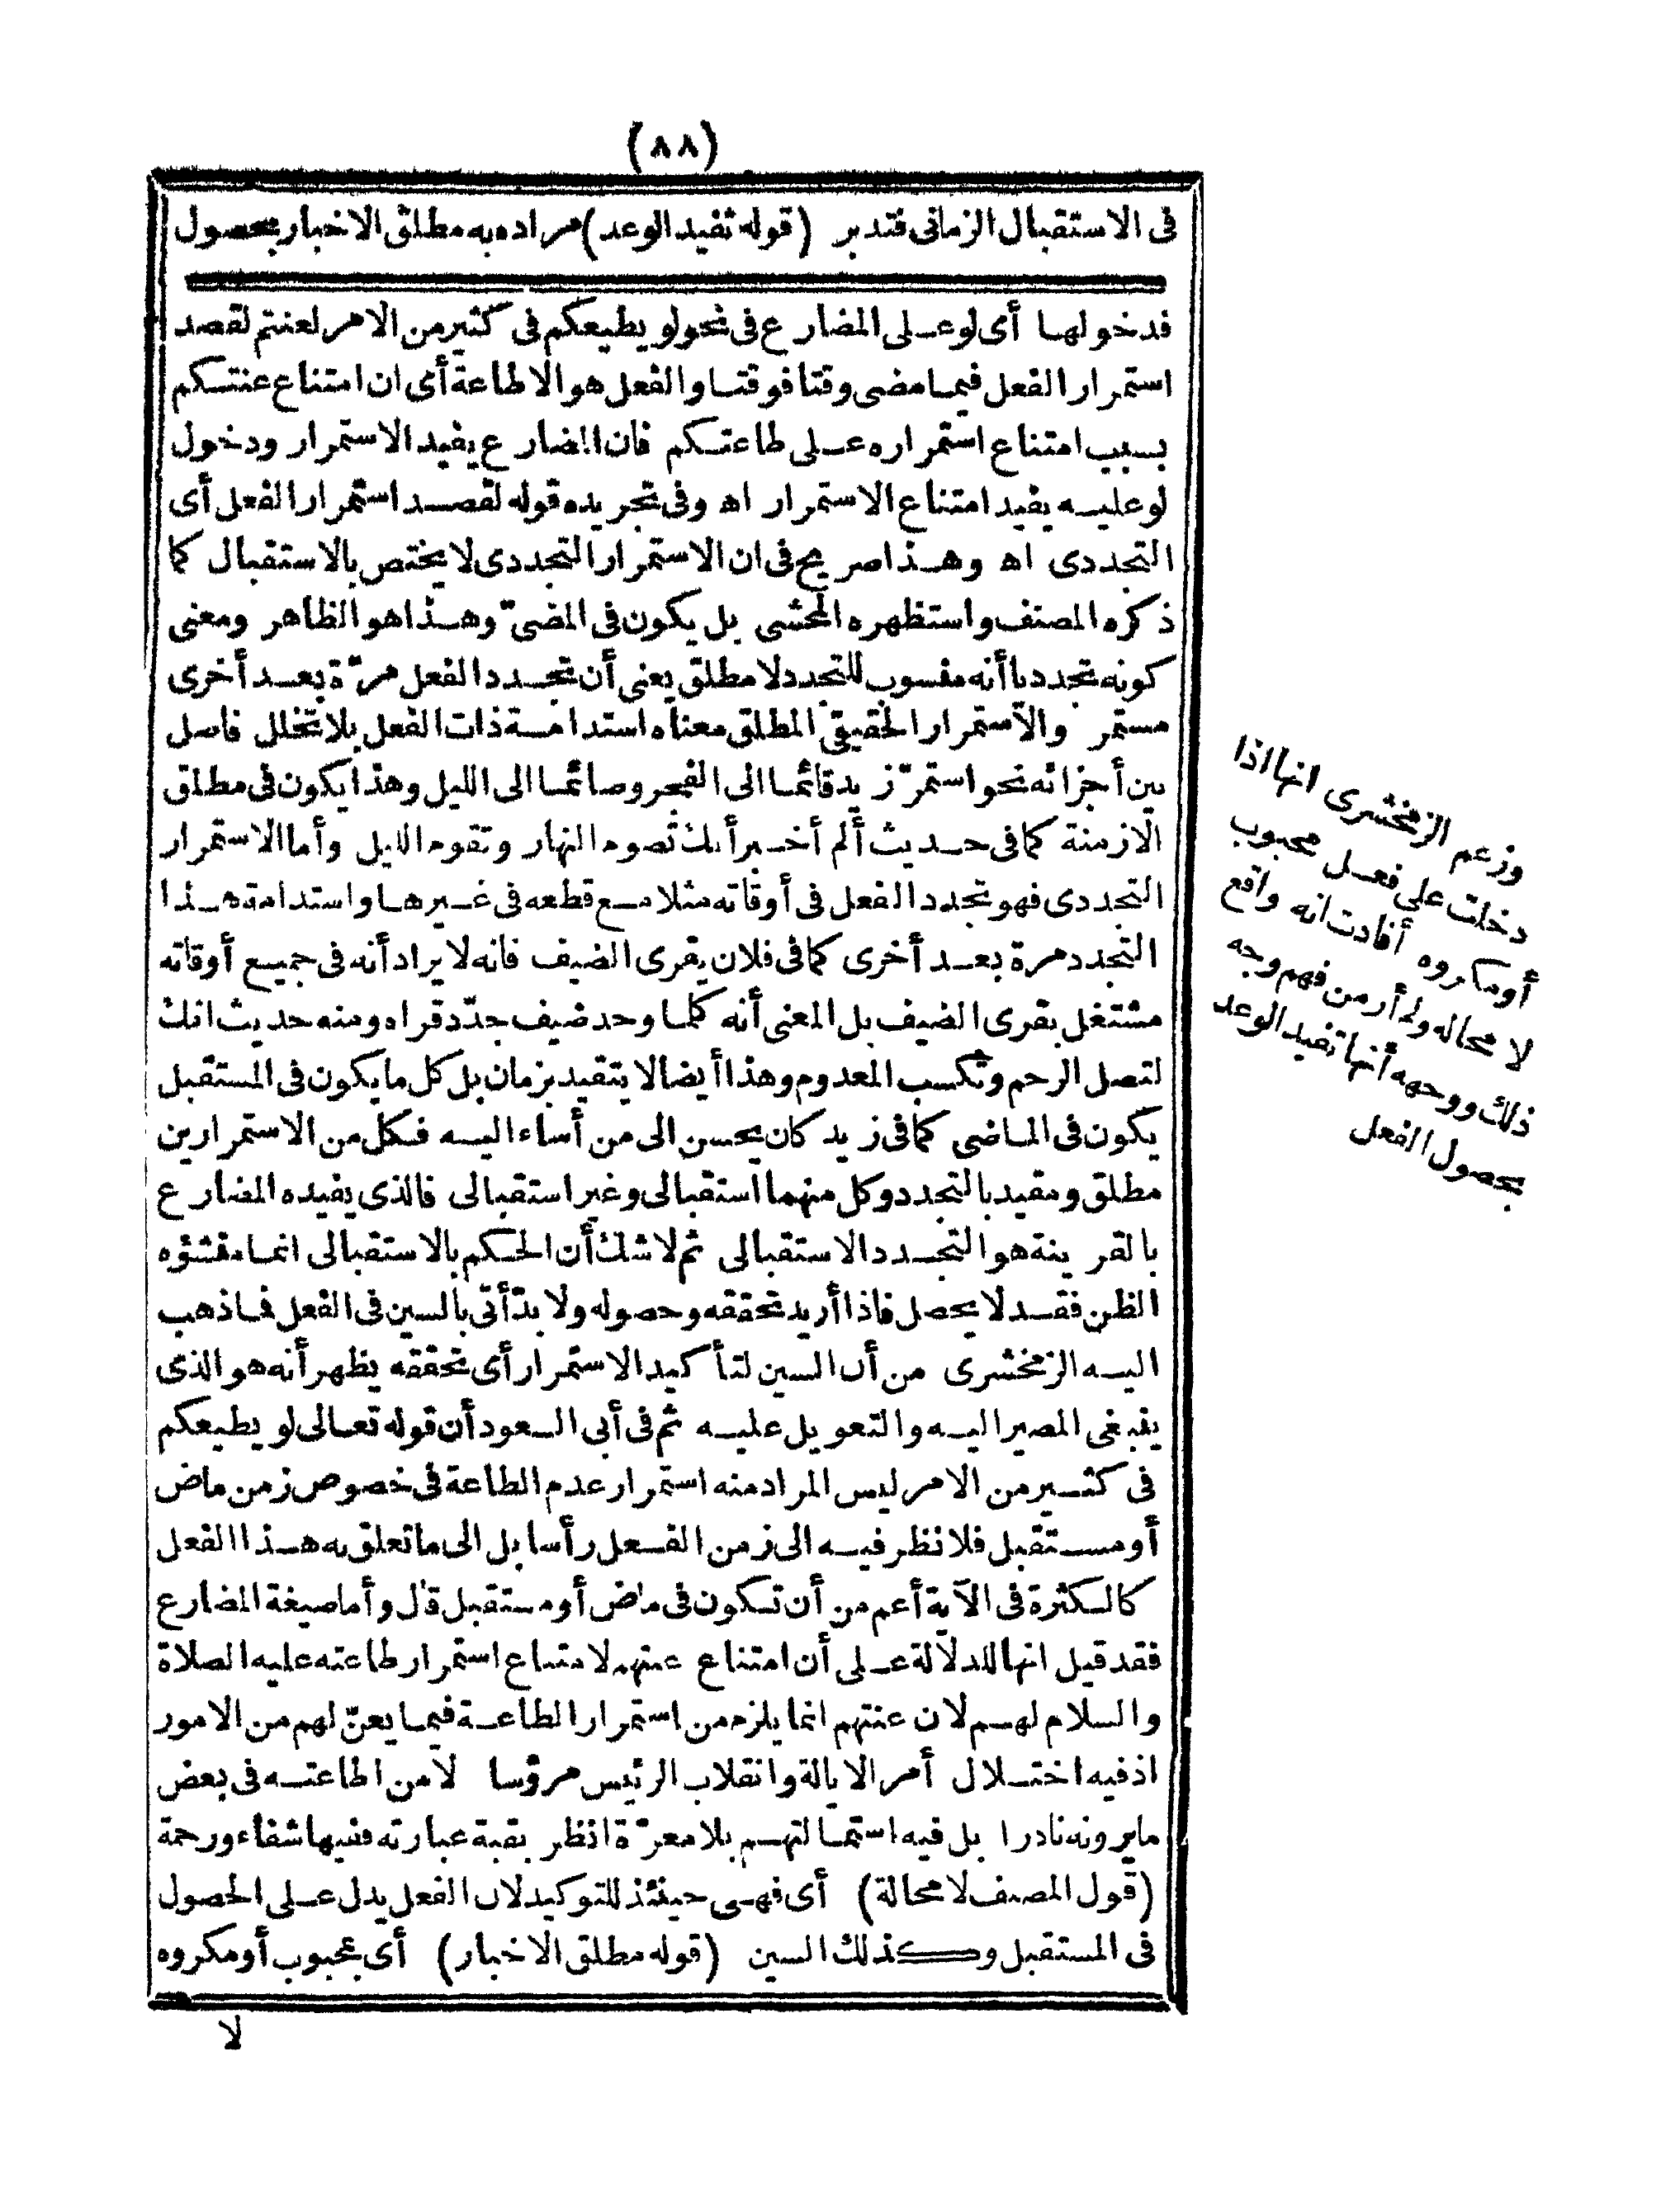 (٨٨)
فى الاستقبال الزمانى فتدبر (قوله تفيد الوعد) مراده به مطلق الاخبار بحصول
فدخولها أى لو عـلى المضارع فى نحو لو يطيعكم فى كثير من الامر لعنتم لقصد
استمرار الفعل فيما مضى وقتا فوقتا والفعل هو الاطاعة أى ان امتناع عنتكم
بسبب امتناع استمراره عـلى طاعتكم فان المضارع يفيد الاستمرار ودخول
لو عليه يفيد امتناع الاستمرار اه وفى تجريده قوله لقصد استمرار الفعل أى
التجددى اه وهذا صريح فى ان الاستمرار التجددى لا يختص بالاستقبال كما
ذكره المصنف واستظهره المحشى بل يكون فى المضىّ وهذا هو الظاهر ومعنى
كونه تجدديا أنه منسوب للتجدد لا مطلق يعنى أن تجدد الفعل مرّة بعد أخرى
مستمر والاستمرار الحقيقىّ المطلق معناه استدامة ذات الفعل بلا تخلل فاصل
بين أجزائه نحو استمرّ زيد قائما الى الفجر وصائما الى الليل وهذا يكون فى مطلق
الازمنة كما فى حديث ألم أخبر أنك تصوم النهار وتقوم الليل وأما الاستمرار
التجددى فهو تجدد الفعل فى أوقاته مثلا مع قطعه فى غيرها واستدامة هذا
التجدد مرة بعد أخرى كما فى فلان يقرى الضيف فانه لا يراد أنه فى جميع أوقاته
مشتغل بقرى الضيف بل المعنى أنه كلما وجد ضيف جدّد قراه ومنه حديث انك
لتصل الرحم وتكسب المعدوم وهذا أيضا لا يتقيد بزمان بل كل ما يكون فى المستقبل
يكون فى الماضى كما فى زيد كان يحسن الى من أساء اليه فكل من الاستمرارين
مطلق ومقيد بالتجدد وكل منهما استقبالى وغير استقبالى فالذى يفيده المضارع
بالقرينة هو التجدد الاستقبالى ثم لا شك أن الحكم بالاستقبالى انما منشؤه
الظن فقد لا يحصل فاذا أريد تحققه وحصوله ولا بدّ أتى بالسين فى الفعل فما ذهب
اليه الزمخشرى من أن السين لتأكيد الاستمرار أى تحققه يظهر أنه هو الذى
ينبغى المصير اليه والتعويل عليه ثم فى أبى السعود أن قوله تعالى لو يطيعكم
فى كثير من الامر ليس المراد منه استمرار عدم الطاعة فى خصوص زمن ماض
أو مستقبل فلا نظر فيه الى زمن الفعل رأسا بل الى ما تعلق به هذا الفعل
كالكثرة فى الآية أعم من أن تكون فى ماض أو مستقبل قال وأما صيغة المضارع
فقد قيل انها للدلالة عـلى أن امتناع عنتهم لامتناع استمرار طاعته عليه الصلاة
والسلام لهم لان عنتهم انما يلزم من استمرار الطاعة فيما يعنّ لهم من الامور
اذ فيه اختلال أمر الايالة وانقلاب الرئيس مرؤسا لا من اطاعته فى بعض
ما يرونه نادرا بل فيه استمالتهم بلا معرّة انظر بقية عبارته ففيها شفاء ورحمة
(قول المصنف لا محالة) أى فهى حينئذ للتوكيد لان الفعل يدل عـلى الحصول
فى المستقبل وكذلك السين (قوله مطلق الاخبار) أى بمحبوب أو مكروه
لا
وزعم الزمخشرى انها اذا
دخلت على فعل محبوب
أو مكروه أفادت انه واقع
لا محاله ولم أر من فهم وجه
ذلك ووجهه أنها تفيد الوعد
بحصول الفعل